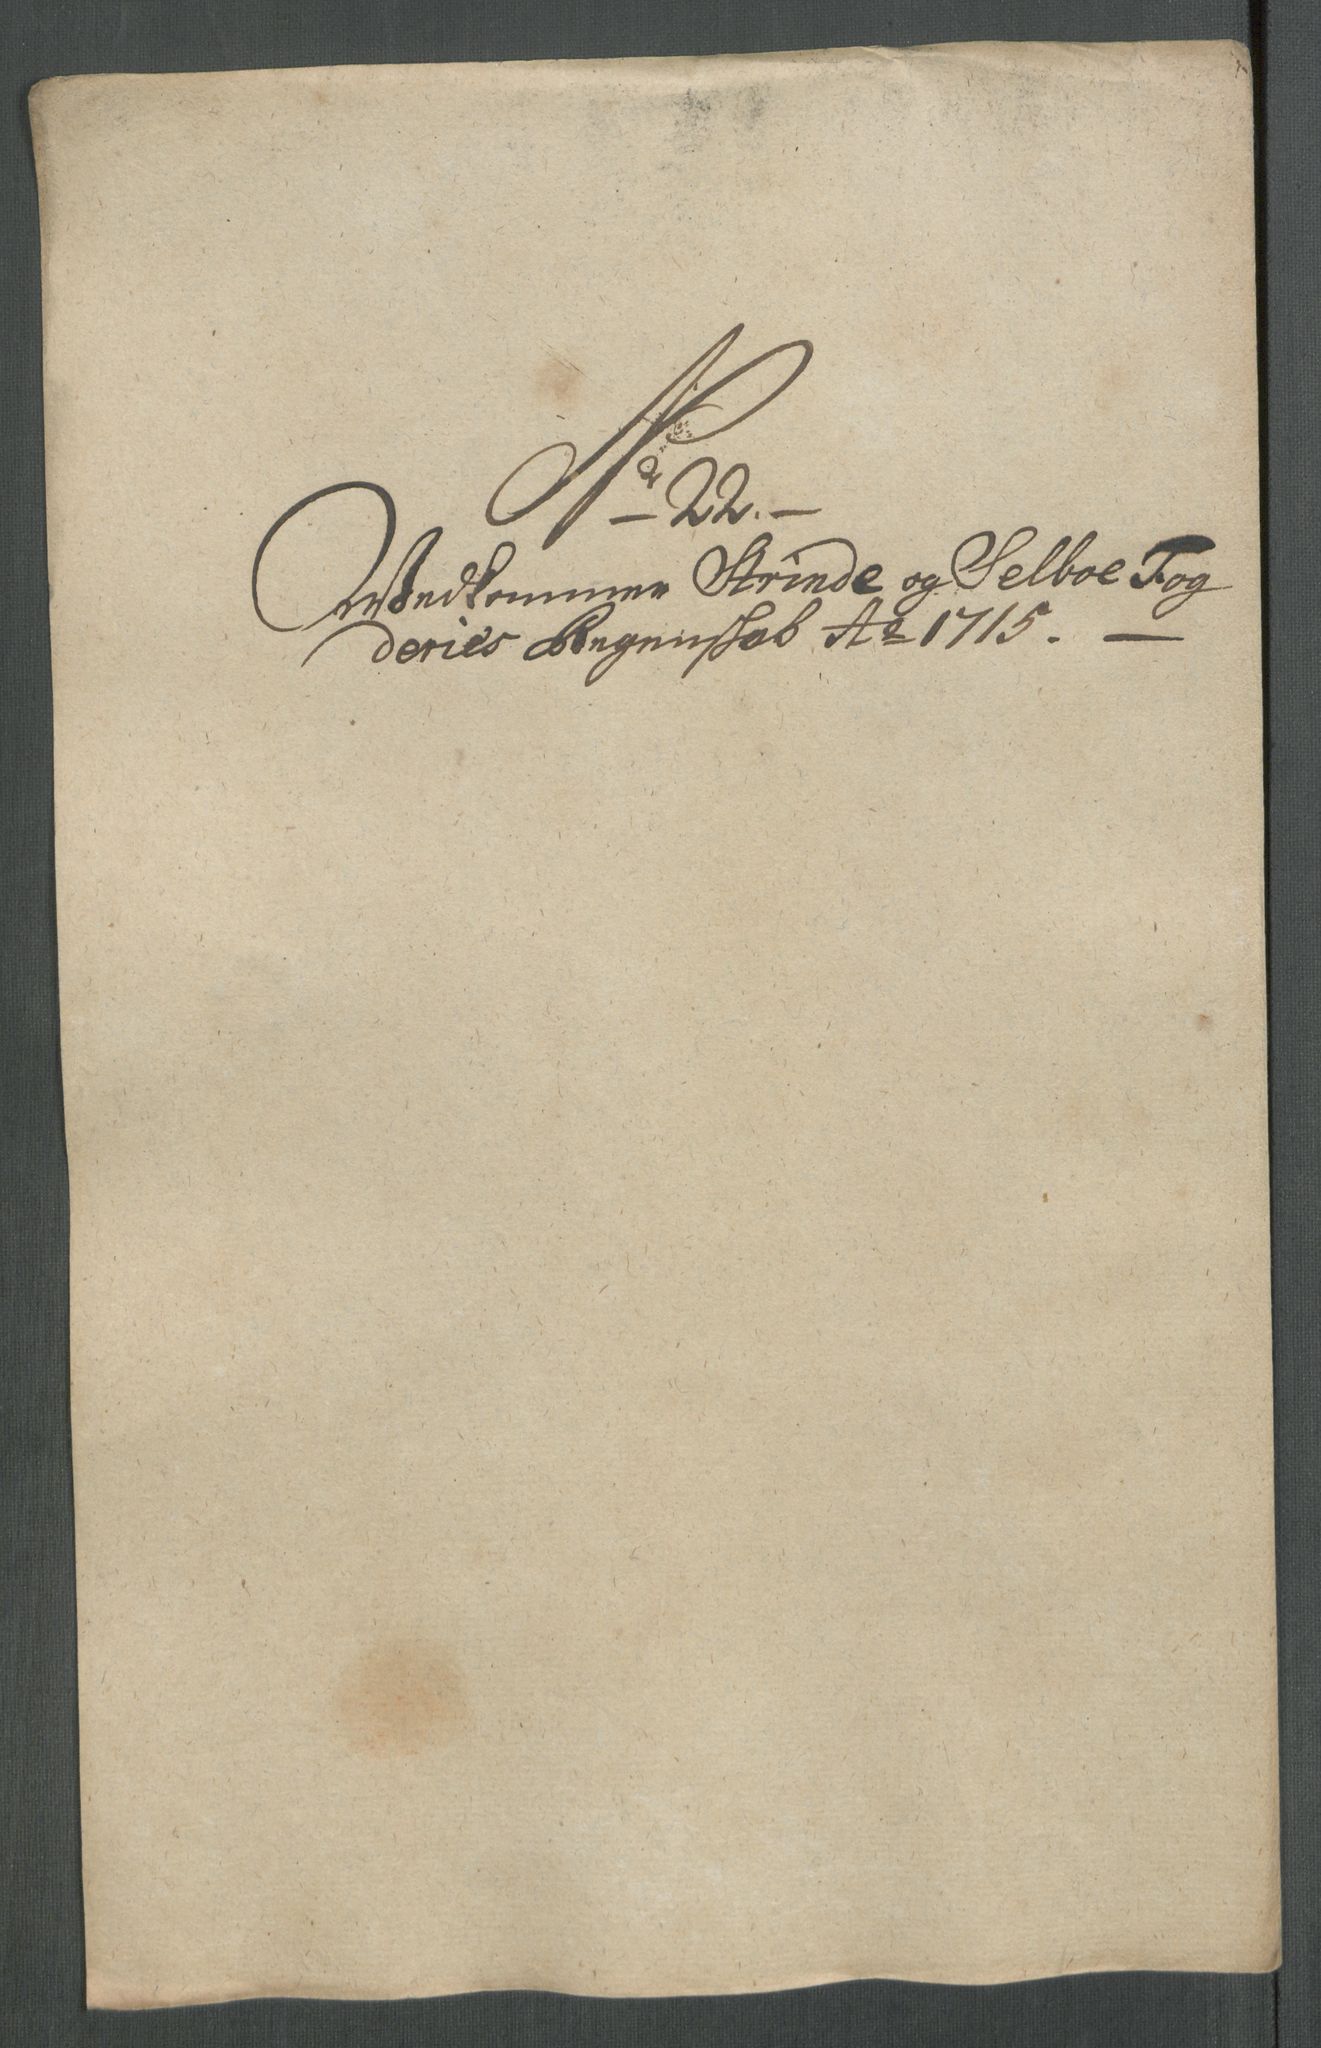 No
- 22. -
Vedkommer Strinde og Selboe Fog
deries Regenskab Ao 1715. -